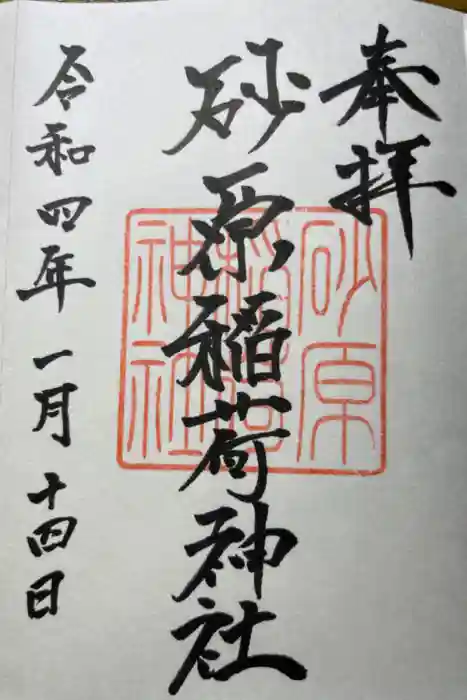 奉拝
砂原稲荷神社
令和四年一月十四日
砂原
稲荷
神社